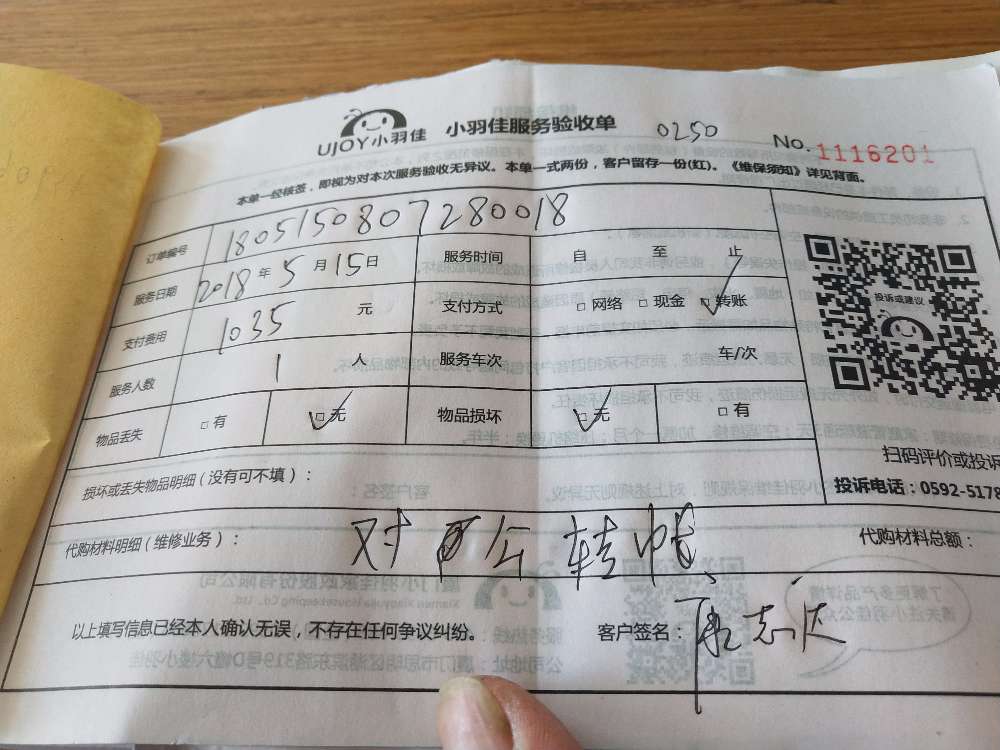 UJOY小羽佳 小羽佳服务验收单 0250 No. 1116201
本单一经核签，即视为对本次服务验收无异议。本单一式两份，客户留存一份(红)。《维保须知》详见背面。
订单编号 1805150807280018
服务日期 2018 年 5 月 15 日 服务时间 自 至 止
支付费用 1035 元 支付方式 □ 网络 □ 现金 □ 转账
服务人数 1 人 服务车次 车/次
物品丢失 □ 有 □ 无 物品损坏 □ 无 □ 有
投诉或建议
扫码评价或投诉
投诉电话：0592-5178
损坏或丢失物品明细（没有可不填）：
代购材料明细（维修业务）： 对公转帐 代购材料总额：
以上填写信息已经本人确认无误，不存在任何争议纠纷。 客户签名：